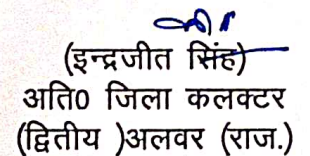 (इन्द्रजीत सिंह)
अति0 जिला कलक्टर
(द्वितीय )अलवर (राज.)